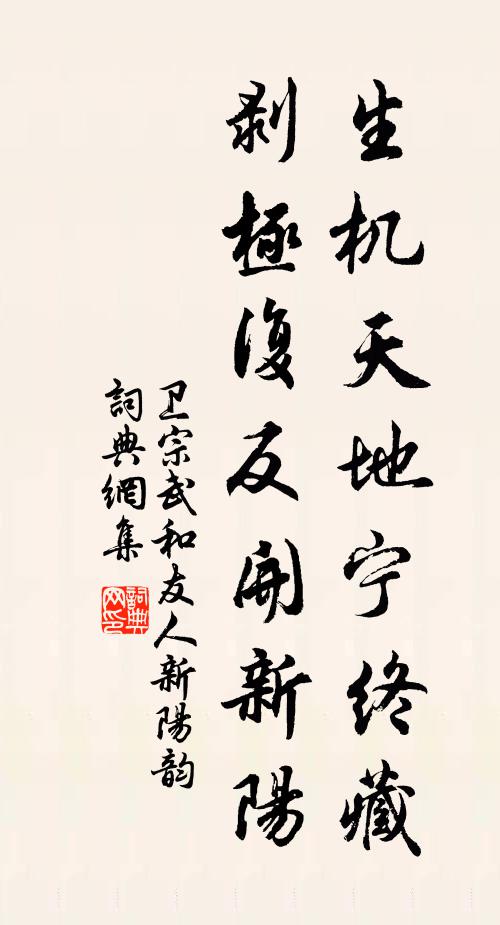 生机天地宁终藏
剥極復反開新陽
卫宗武和友人新陽韵
詞典網集
詞典网印